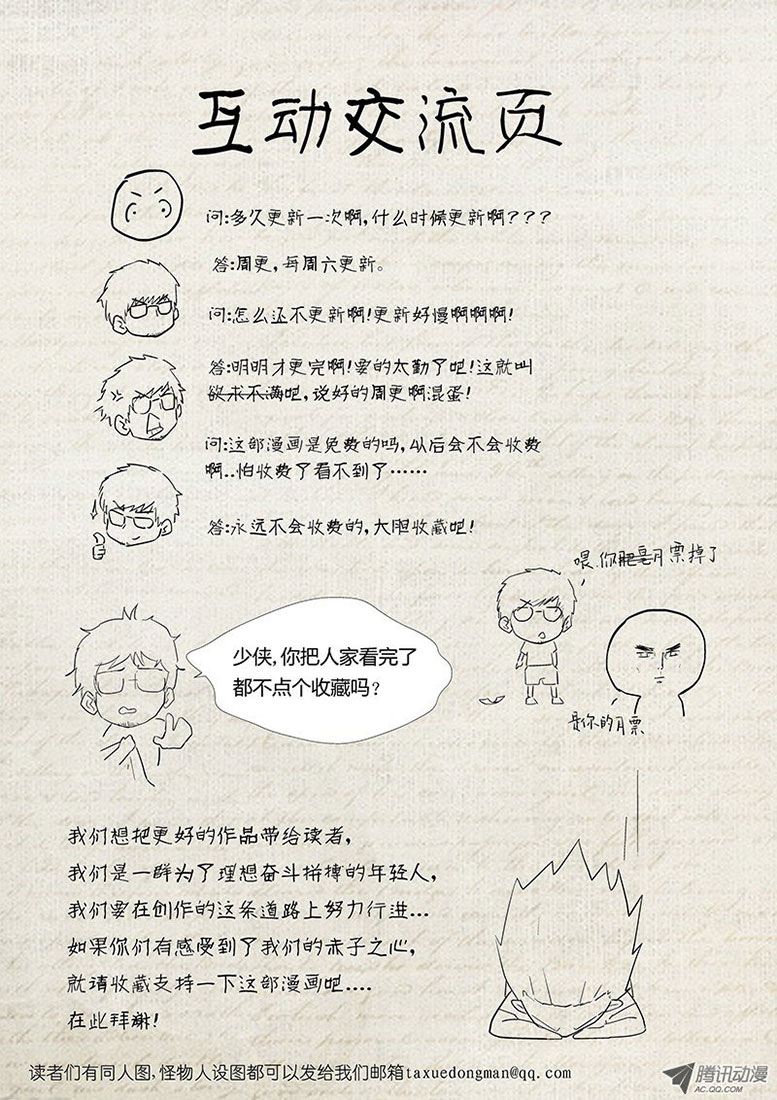 互动交流页
问:多久更新一次啊,什么时候更新啊???
答:周更,每周六更新。
问:怎么还不更新啊!更新好慢啊啊啊!
答:明明才更完啊!要的太勤了吧!这就叫
欲求不满吧,说好的周更啊混蛋!
问:这部漫画是免费的吗,以后会不会收费
啊..怕收费了看不到了……
答:永远不会收费的,大胆收藏吧!
喂.你肥皂月票掉了
是你的月票
少侠,你把人家看完了
都不点个收藏吗?
我们想把更好的作品带给读者,
我们是一群为了理想奋斗拼搏的年轻人,
我们要在创作的这条道路上努力行进...
如果你们有感受到了我们的赤子之心,
就请收藏支持一下这部漫画吧....
在此拜谢!
读者们有同人图,怪物人设图都可以发给我们邮箱taxuedongman@qq.com
腾讯动漫
AC.QQ.COM